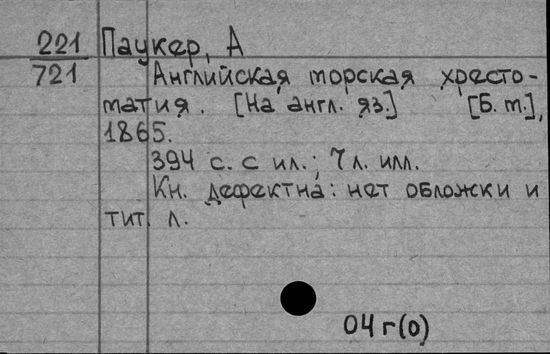 221 Паукер, А
721 Английская морская хресто-
матия. [На англ. яз.] [Б. т.],
1865.
394 с. с ил.; 7 л. илл.
Кн. дефектна: нет обложки и
тит. л.
04 г(о)